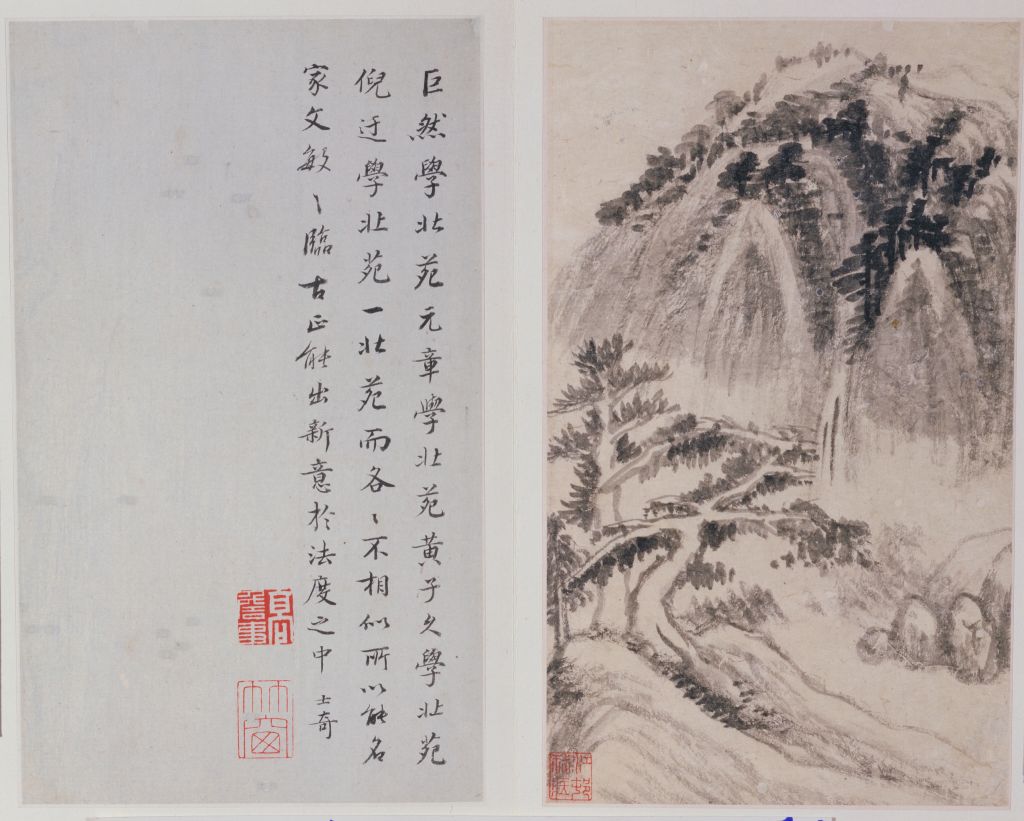 巨然學北苑元章學北苑黃子久學北苑
倪迂學北苑一北苑而各〻不相似所以能名
家文敏〻臨古正能出新意於法度之中 士奇
竹窗